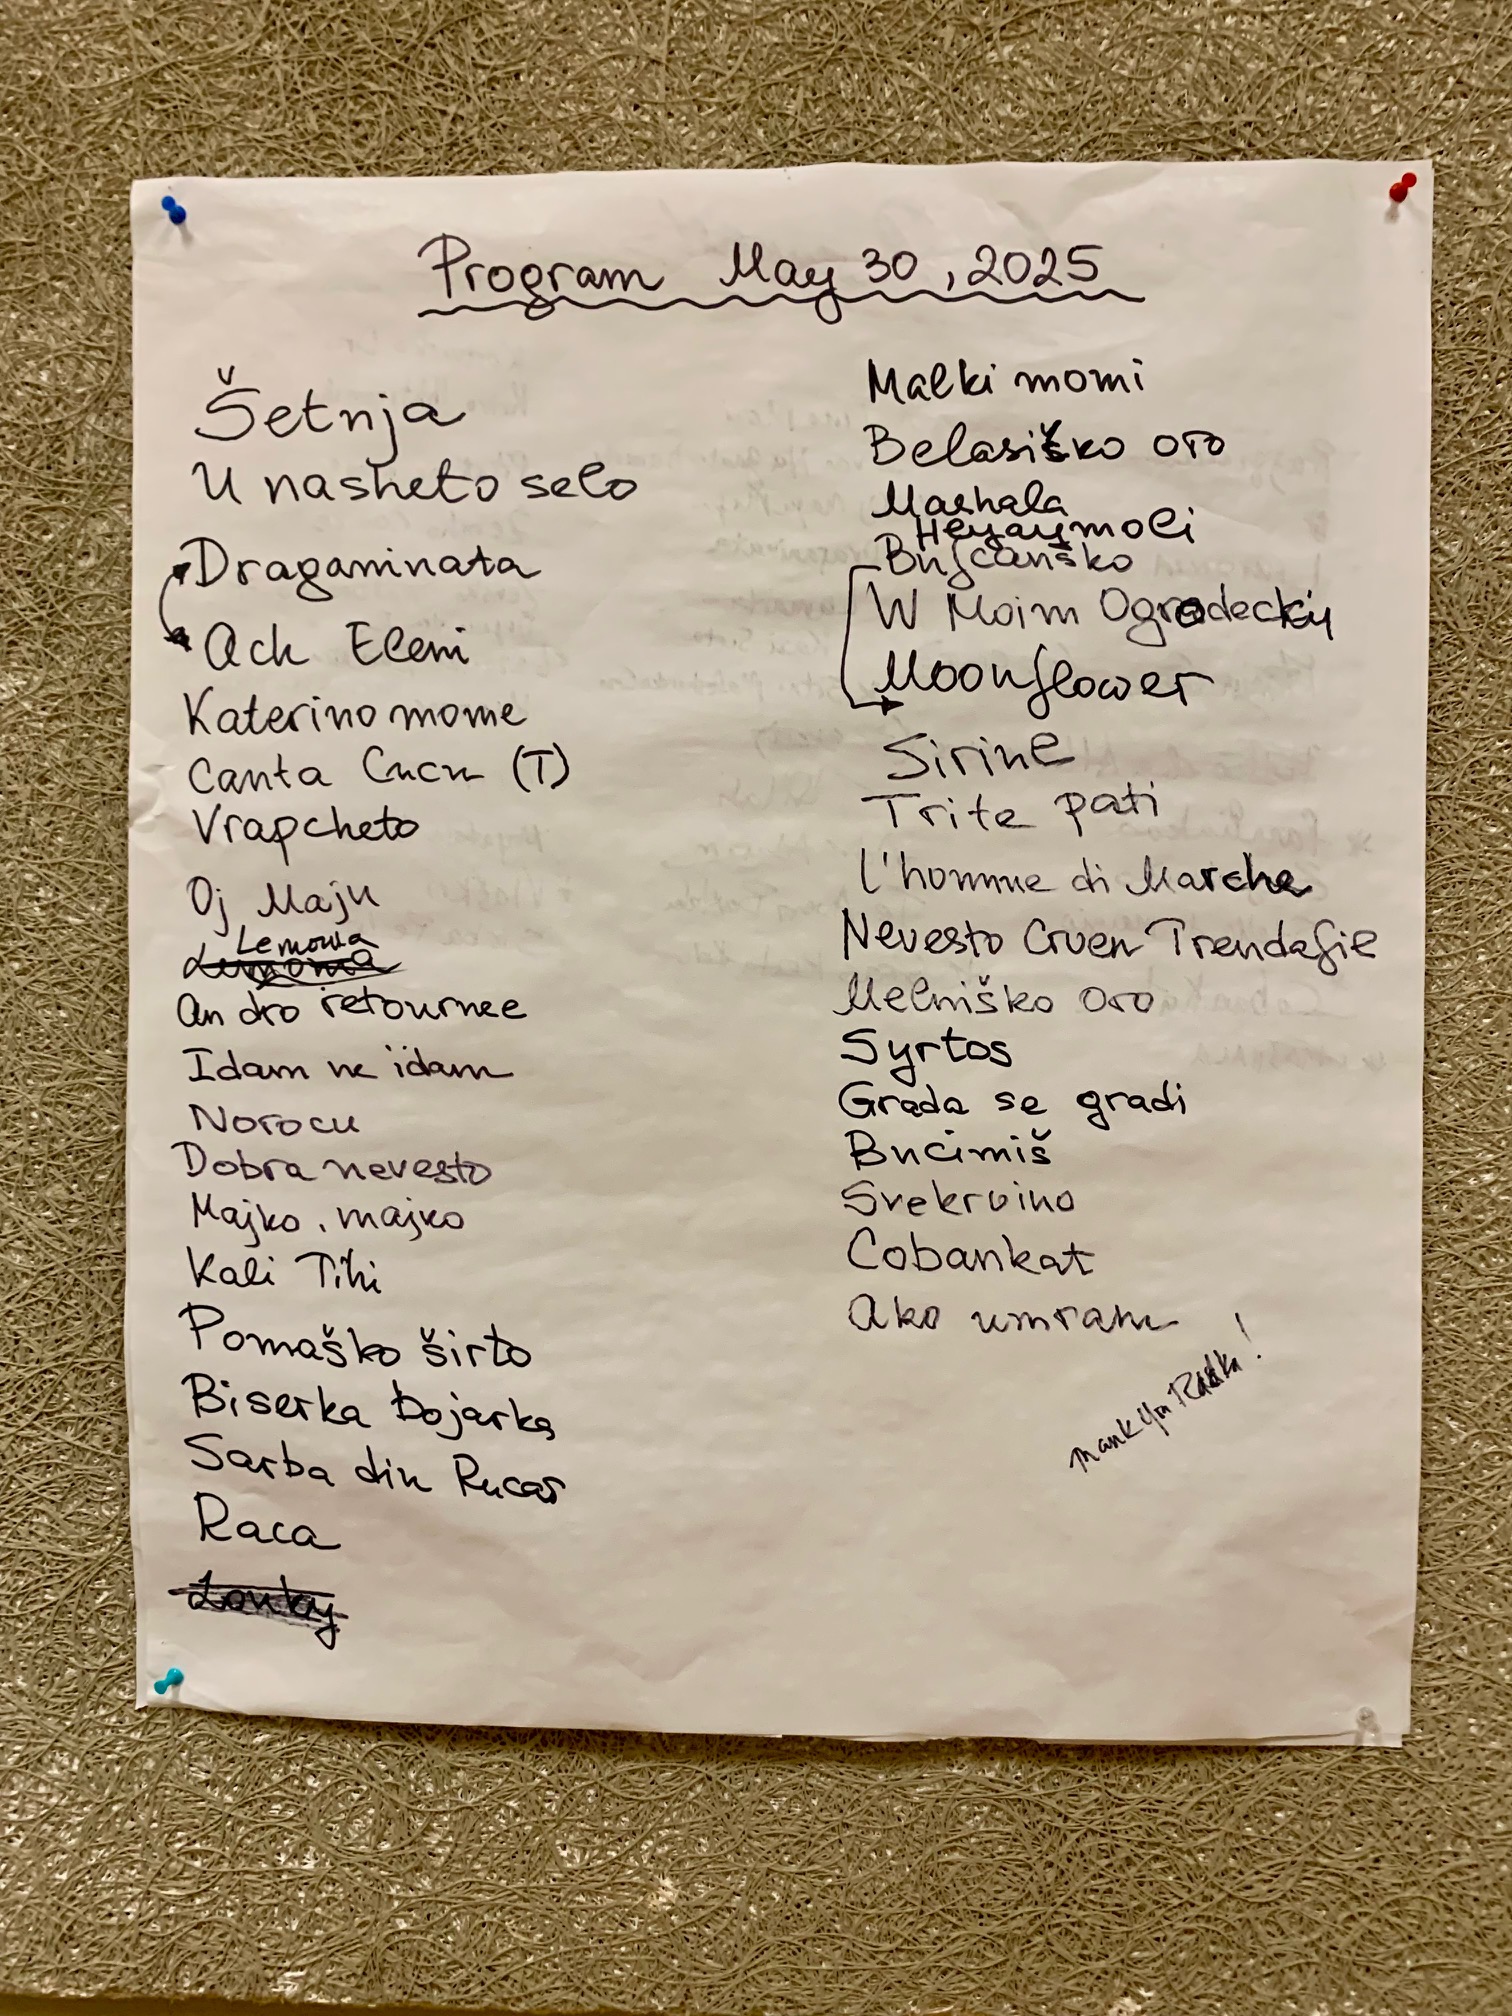 Program May 30, 2025
Šetnja
U nasheto selo
Dragaminata
Ach Eleni
Katerino mome
Canta Cucu (T)
Vrapcheto
Oj Maju
Lemonia
Andro retournee
Idam ne idam
Norocu
Dobra nevesto
Majko, majko
Kali Tihi
Pomaško širto
Biserka Bojarka
Sarba din Rucar
Raca
Malki momi
Belasiško oro
Mashala
Bufčanško
W Moim Ogrodeckiy
Moonflower
Sirine
Trite pati
L'homme di Marche
Nevesto Crven Trendafie
Melniško oro
Syrtos
Grada se gradi
Bučimiš
Svekrvino
Cobankat
Ako umram
Thank You Radka!